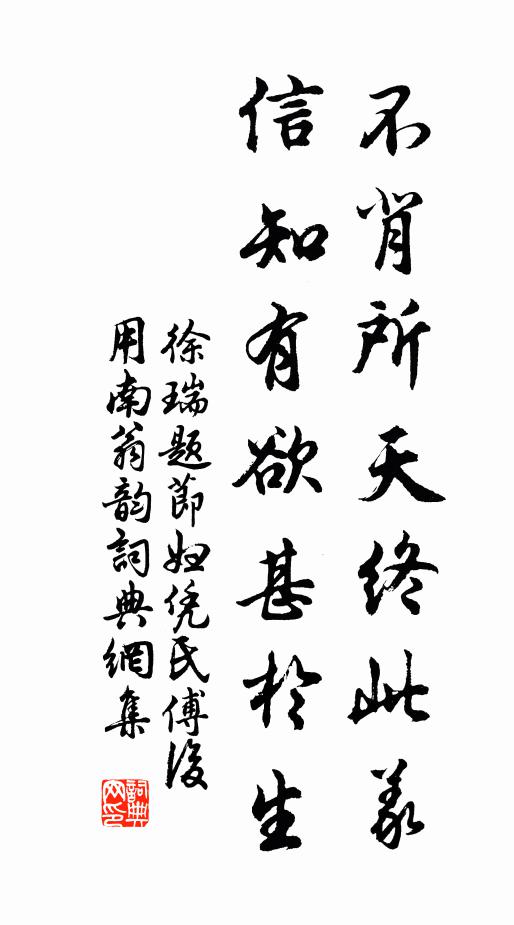 不背所天终此義
信知有欲甚於生
徐瑞题節妇凭氏傅後
用南翁韵詞典網集
詞典网印